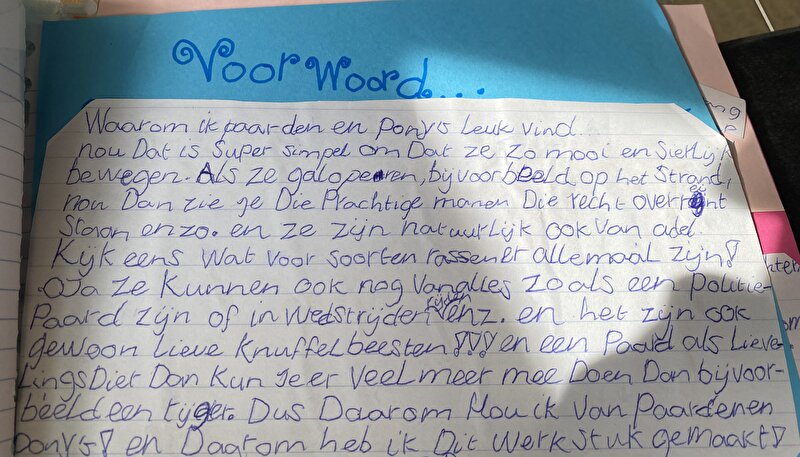 Voorwoord...
Waarom ik paarden en pony's leuk vind.
nou Dat is Super simpel om Dat ze zo mooi en Sierlijk
bewegen. Als ze galoperen, bijvoorbeeld, op het Strand,
nou Dan zie je Die Prachtige manen Die recht overeint
Staan enzo. en ze zijn natuurlijk ook van adel.
Kijk eens Wat voor soorten rassen er allemaal zijn!
OJa ze Kunnen ook nog Vanalles Zoals een Politie-
Paard zijn of in Wedstrijden rijden enz. en het zijn ook
gewoon Lieve Knuffelbeesten!!! en een Paard als Lieve-
LingsDier Dan Kun Je er Veel meer mee Doen Dan bijvoor-
beeld een tijger. Dus Daarom Hou ik Van Paarden en
pony's! en Daarom heb ik Dit Werkstuk gemaakt!